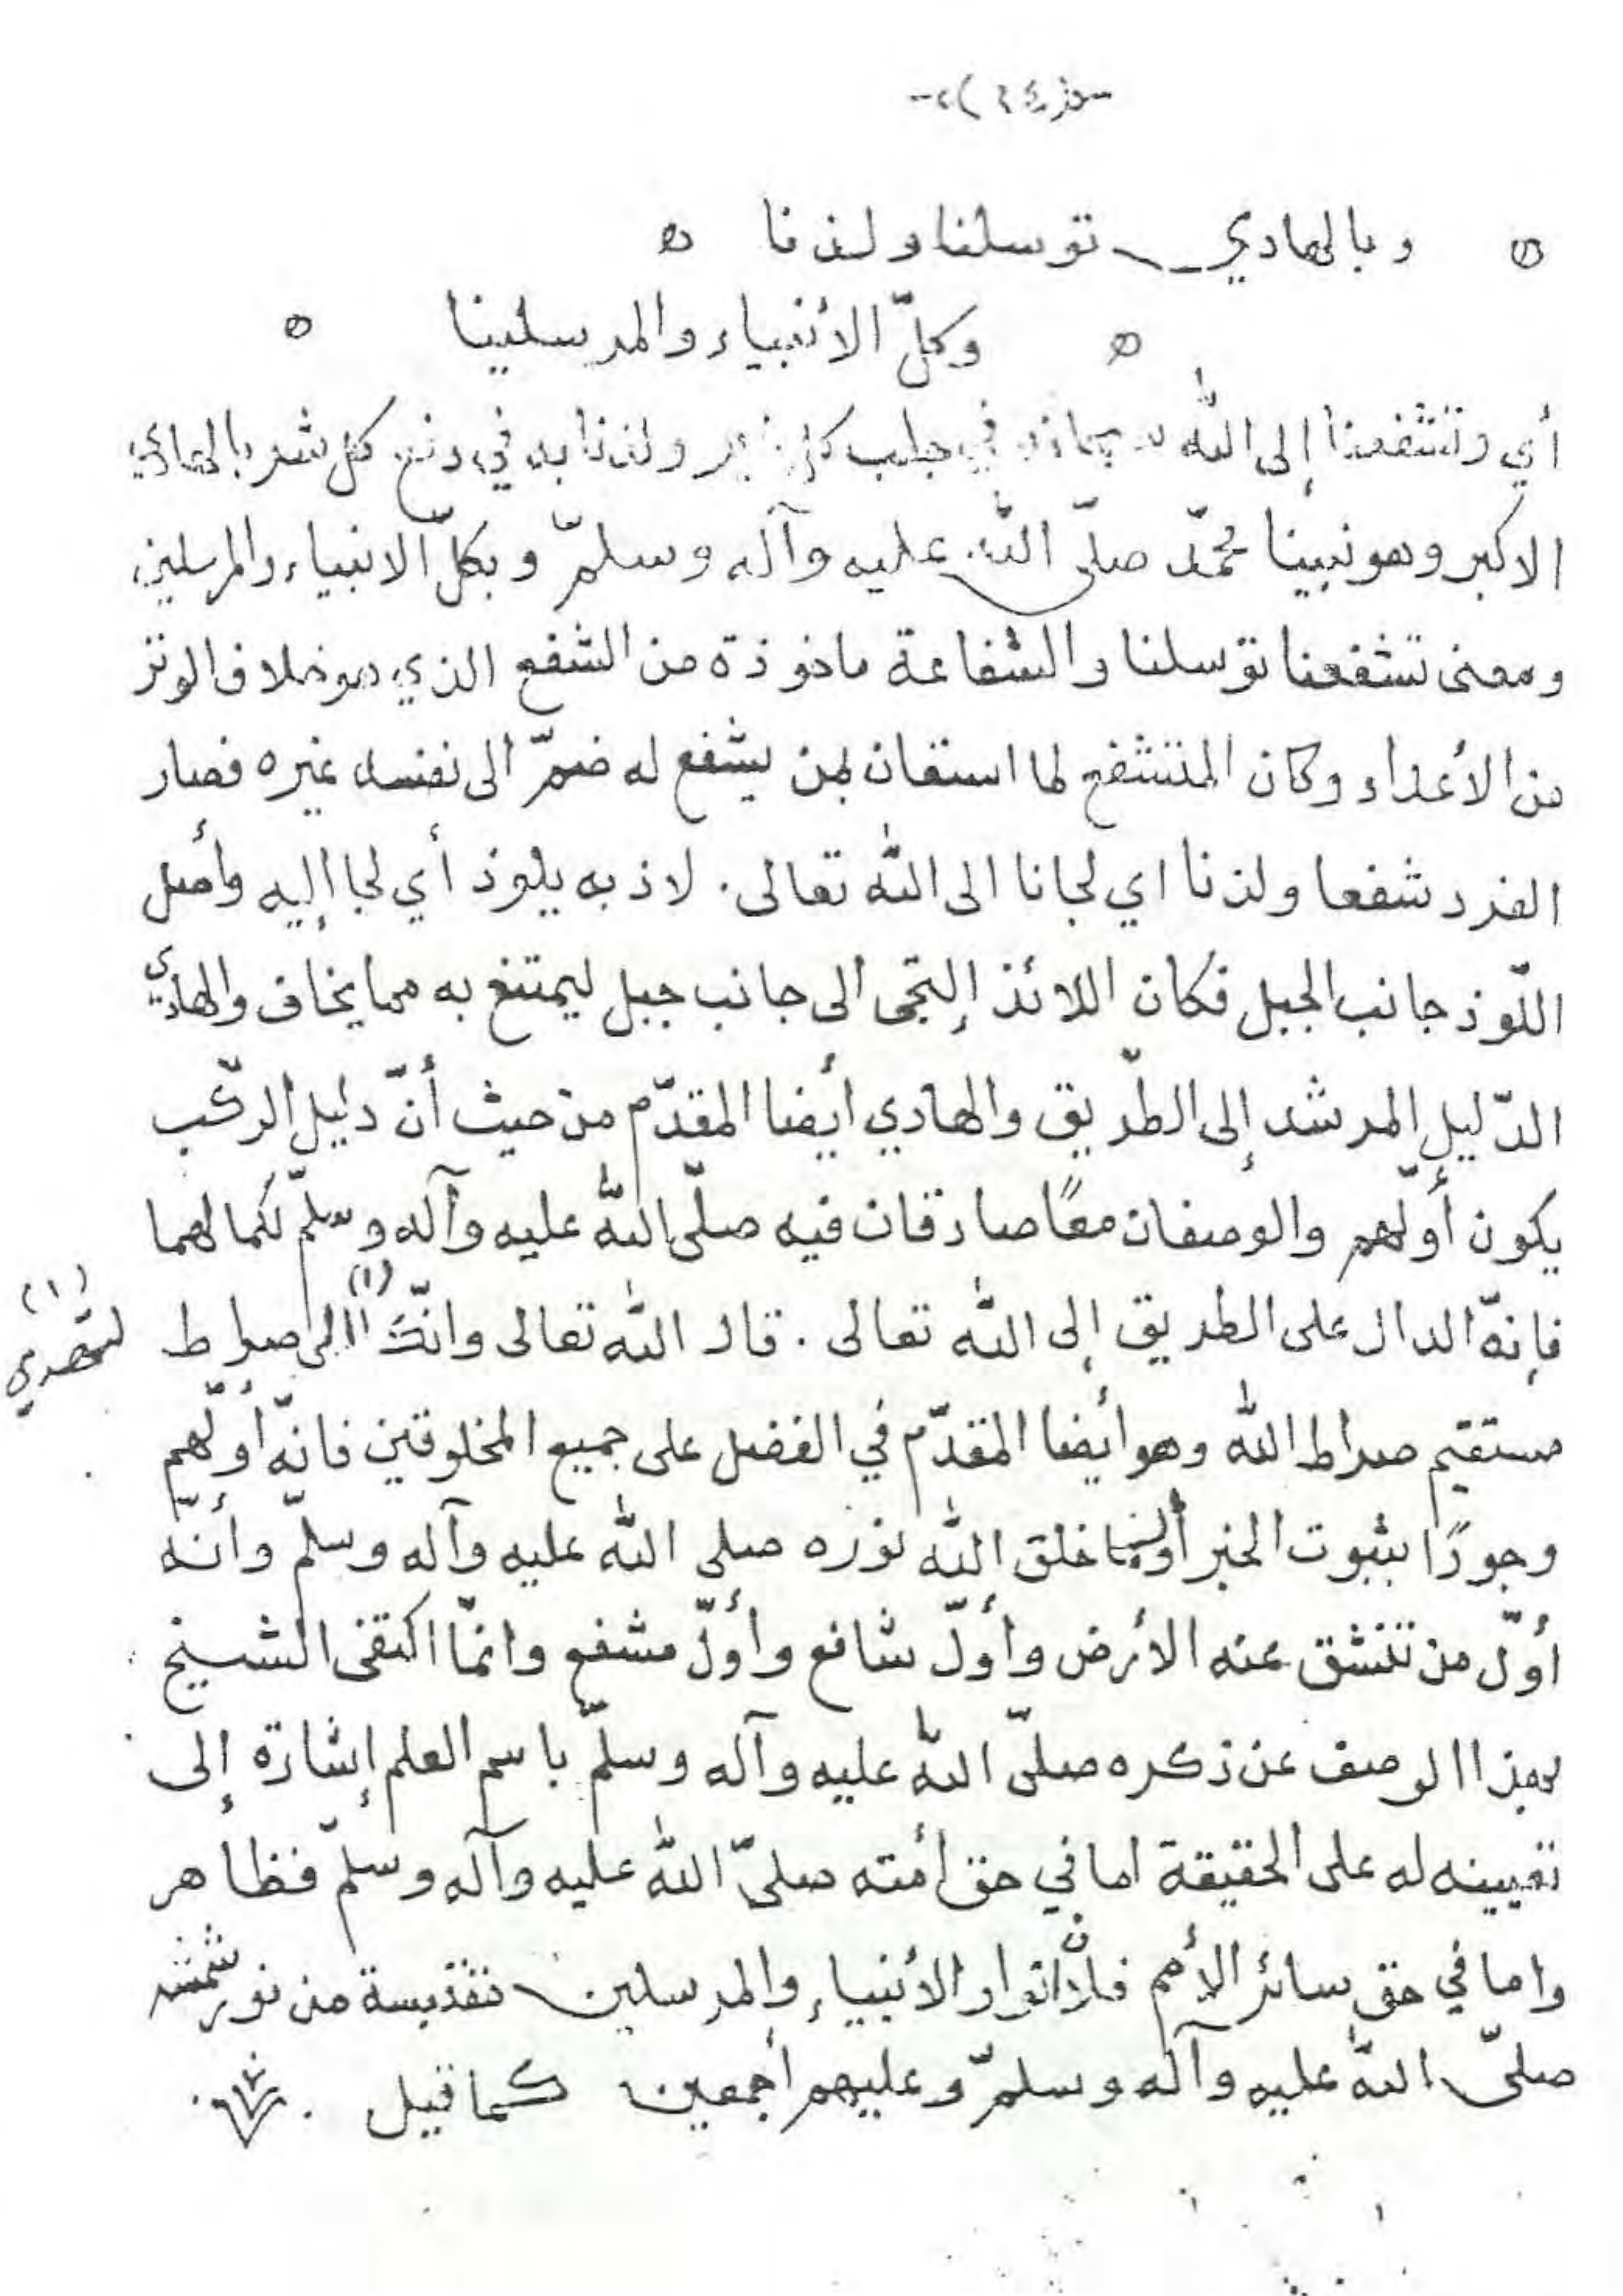 وبالهادي توسلنا ولذنا
وكلّ الأنبياء والمرسلينا
أي وتشفعنا إلى الله سبحانه في جلب كل خير ولذنا به في دفع كل شر بالهادي
الاكبر وهو نبينا محمّد صلّى الله عليه وآله وسلمّ وبكلّ الانبياء والمرسلين
ومعنى تشفعنا توسلنا والشفاعة ماخوذة من الشفع الذي هو خلاف الوتر
من الأعداء وكان المتشفع لما استعان بمن يشفع له ضمّ الى نفسه غيره فصار
الفرد شفعا ولذنا اي لجانا الى الله تعالى . لاذ به يلوذ أي لجا إليه وأصل
اللّوذ جانب الجبل فكان اللائذ إلتجى الى جانب جبل ليمتنع به مما يخاف والهادي
الدّليل المرشد إلى الطّريق والهادي أيضا المقدّم من حيث أنّ دليل الرّكب
يكون أوّلهم والوصفان معًا صادقان فيه صلّى الله عليه وآله وسلمّ لكمالهما
فإنهّ الدال على الطريق إلى الله تعالى . قال الله تعالى وانّك (١) الى صراط
(١) لتهدي
مستقيم صراط الله وهو أيضا المقدّم في الفضل على جميع المخلوقين فانهّ أوّلهم
وجودًا بثبوت الخبر أول ما خلق الله نوره صلى الله عليه وآله وسلمّ وأنهّ
أوّل من تنشق عنه الأرض وأوّل شافع وأوّل مشفع وانمّا اكتفى الشيخ
بهذا الوصف عن ذكره صلىّ اللهّ عليه وآله وسلمّ باسم العلم إشارة إلى
تعيينه له على الحقيقة اما في حق أمته صلىّ الله عليه وآله وسلمّ فظاهر
واما في حق سائر الأمم فلأنّ انوار الأنبياء والمرسلين مقتبسة من نور شمسه
صلىّ اللهّ عليه وآله وسلمّ وعليهم أجمعين كما قيل .